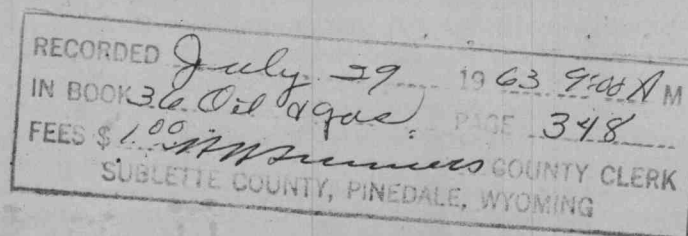 RECORDED July 29 1963 9:00 A M
IN BOOK 36 Oil & gas, PAGE 348
FEES $ 1.00 COUNTY CLERK
SUBLETTE COUNTY, PINEDALE, WYOMING